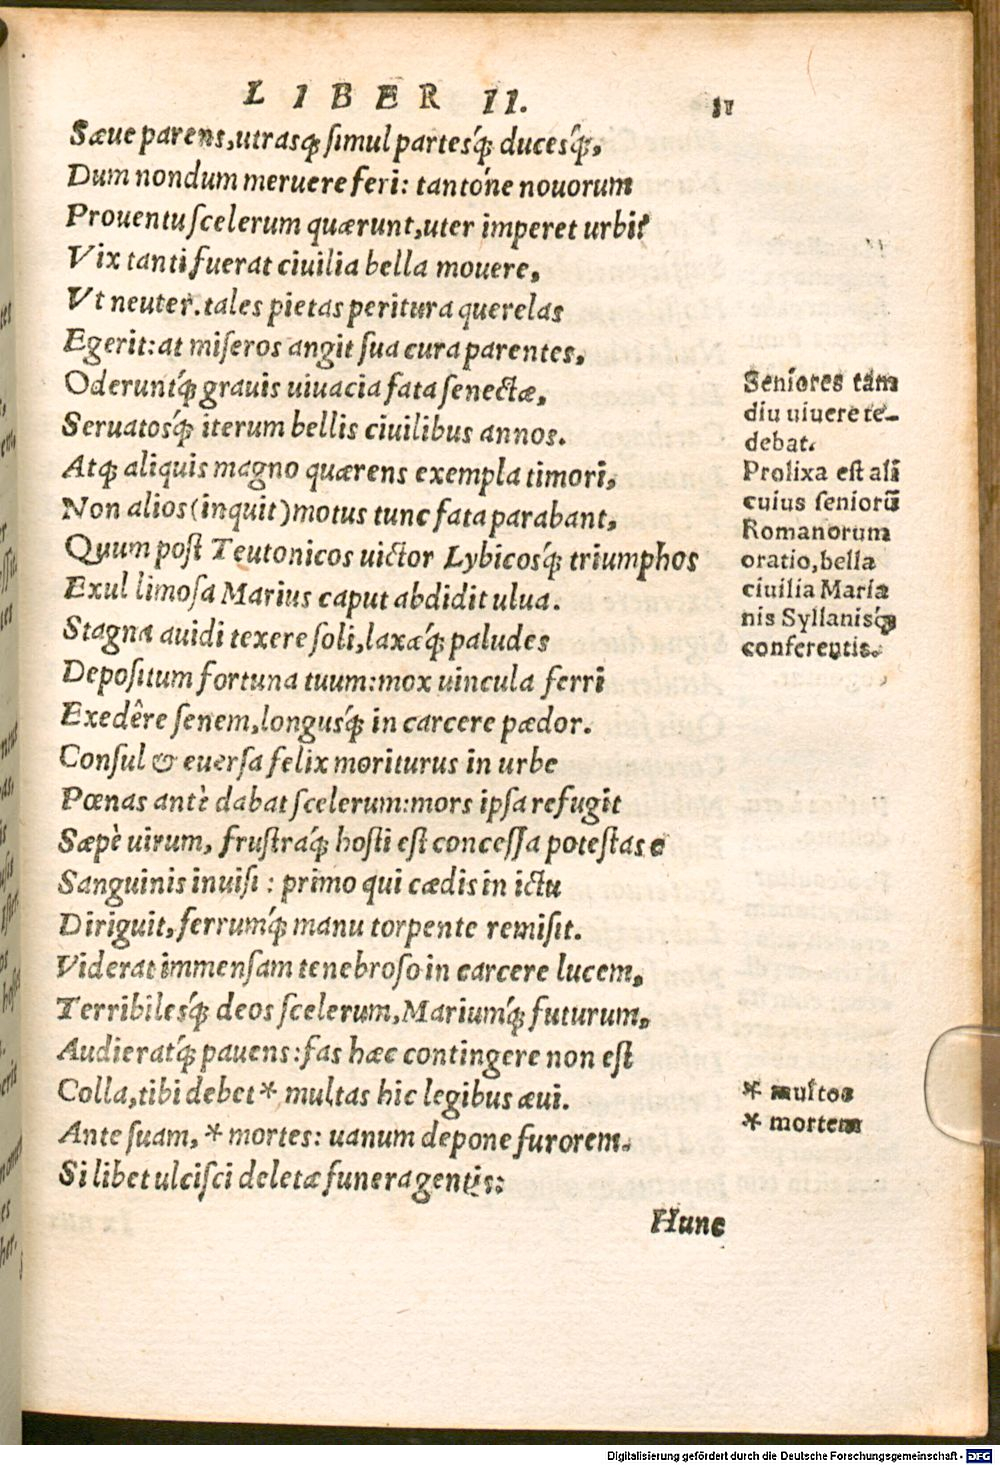 LIBER II. 51
Sæue parens,utrasq́; simul partesq́; ducesq́;,
Dum nondum meruere feri: tantóne nouorum
Prouentu scelerum quærunt,uter imperet urbi?
Vix tanti fuerat ciuilia bella mouere,
Vt neuter. tales pietas peritura querelas
Egerit:at miseros angit sua cura parentes,
Oderuntq́; grauis uiuacia fata senectæ,
Seruatosq́; iterum bellis ciuilibus annos.
Atq; aliquis magno quærens exempla timori,
Non alios(inquit)motus tunc fata parabant,
Quum post Teutonicos uictor Lybicosq́; triumphos
Exul limosa Marius caput abdidit ulua.
Stagna auidi texere soli,laxæq́; paludes
Depositum fortuna tuum:mox uincula ferri
Exedêre senem,longusq́; in carcere pædor.
Consul & euersa felix moriturus in urbe
Pœnas antè dabat scelerum:mors ipsa refugit
Sæpè uirum, frustraq́; hosti est concessa potestas
Sanguinis inuisi : primo qui cædis in ictu
Diriguit,ferrumq́; manu torpente remisit.
Viderat immensam tenebroso in carcere lucem,
Terribilesq́; deos scelerum,Mariumq́; futurum,
Audieratq́; pauens:fas hæc contingere non est
Colla,tibi debet * multas hic legibus æui.
Ante suam, * mortes: uanum depone furorem.
Si libet ulcisci deletæ funera gentis:
Hunc
Seniores tam
diu uiuere te-
debat.
Prolixa est ali
cuius seniorũ
Romanorum
oratio,bella
ciuilia Maria
nis Syllanisq́;
conferentis.
* multos
* mortem
Digitalisierung gefördert durch die Deutsche Forschungsgemeinschaft - DFG